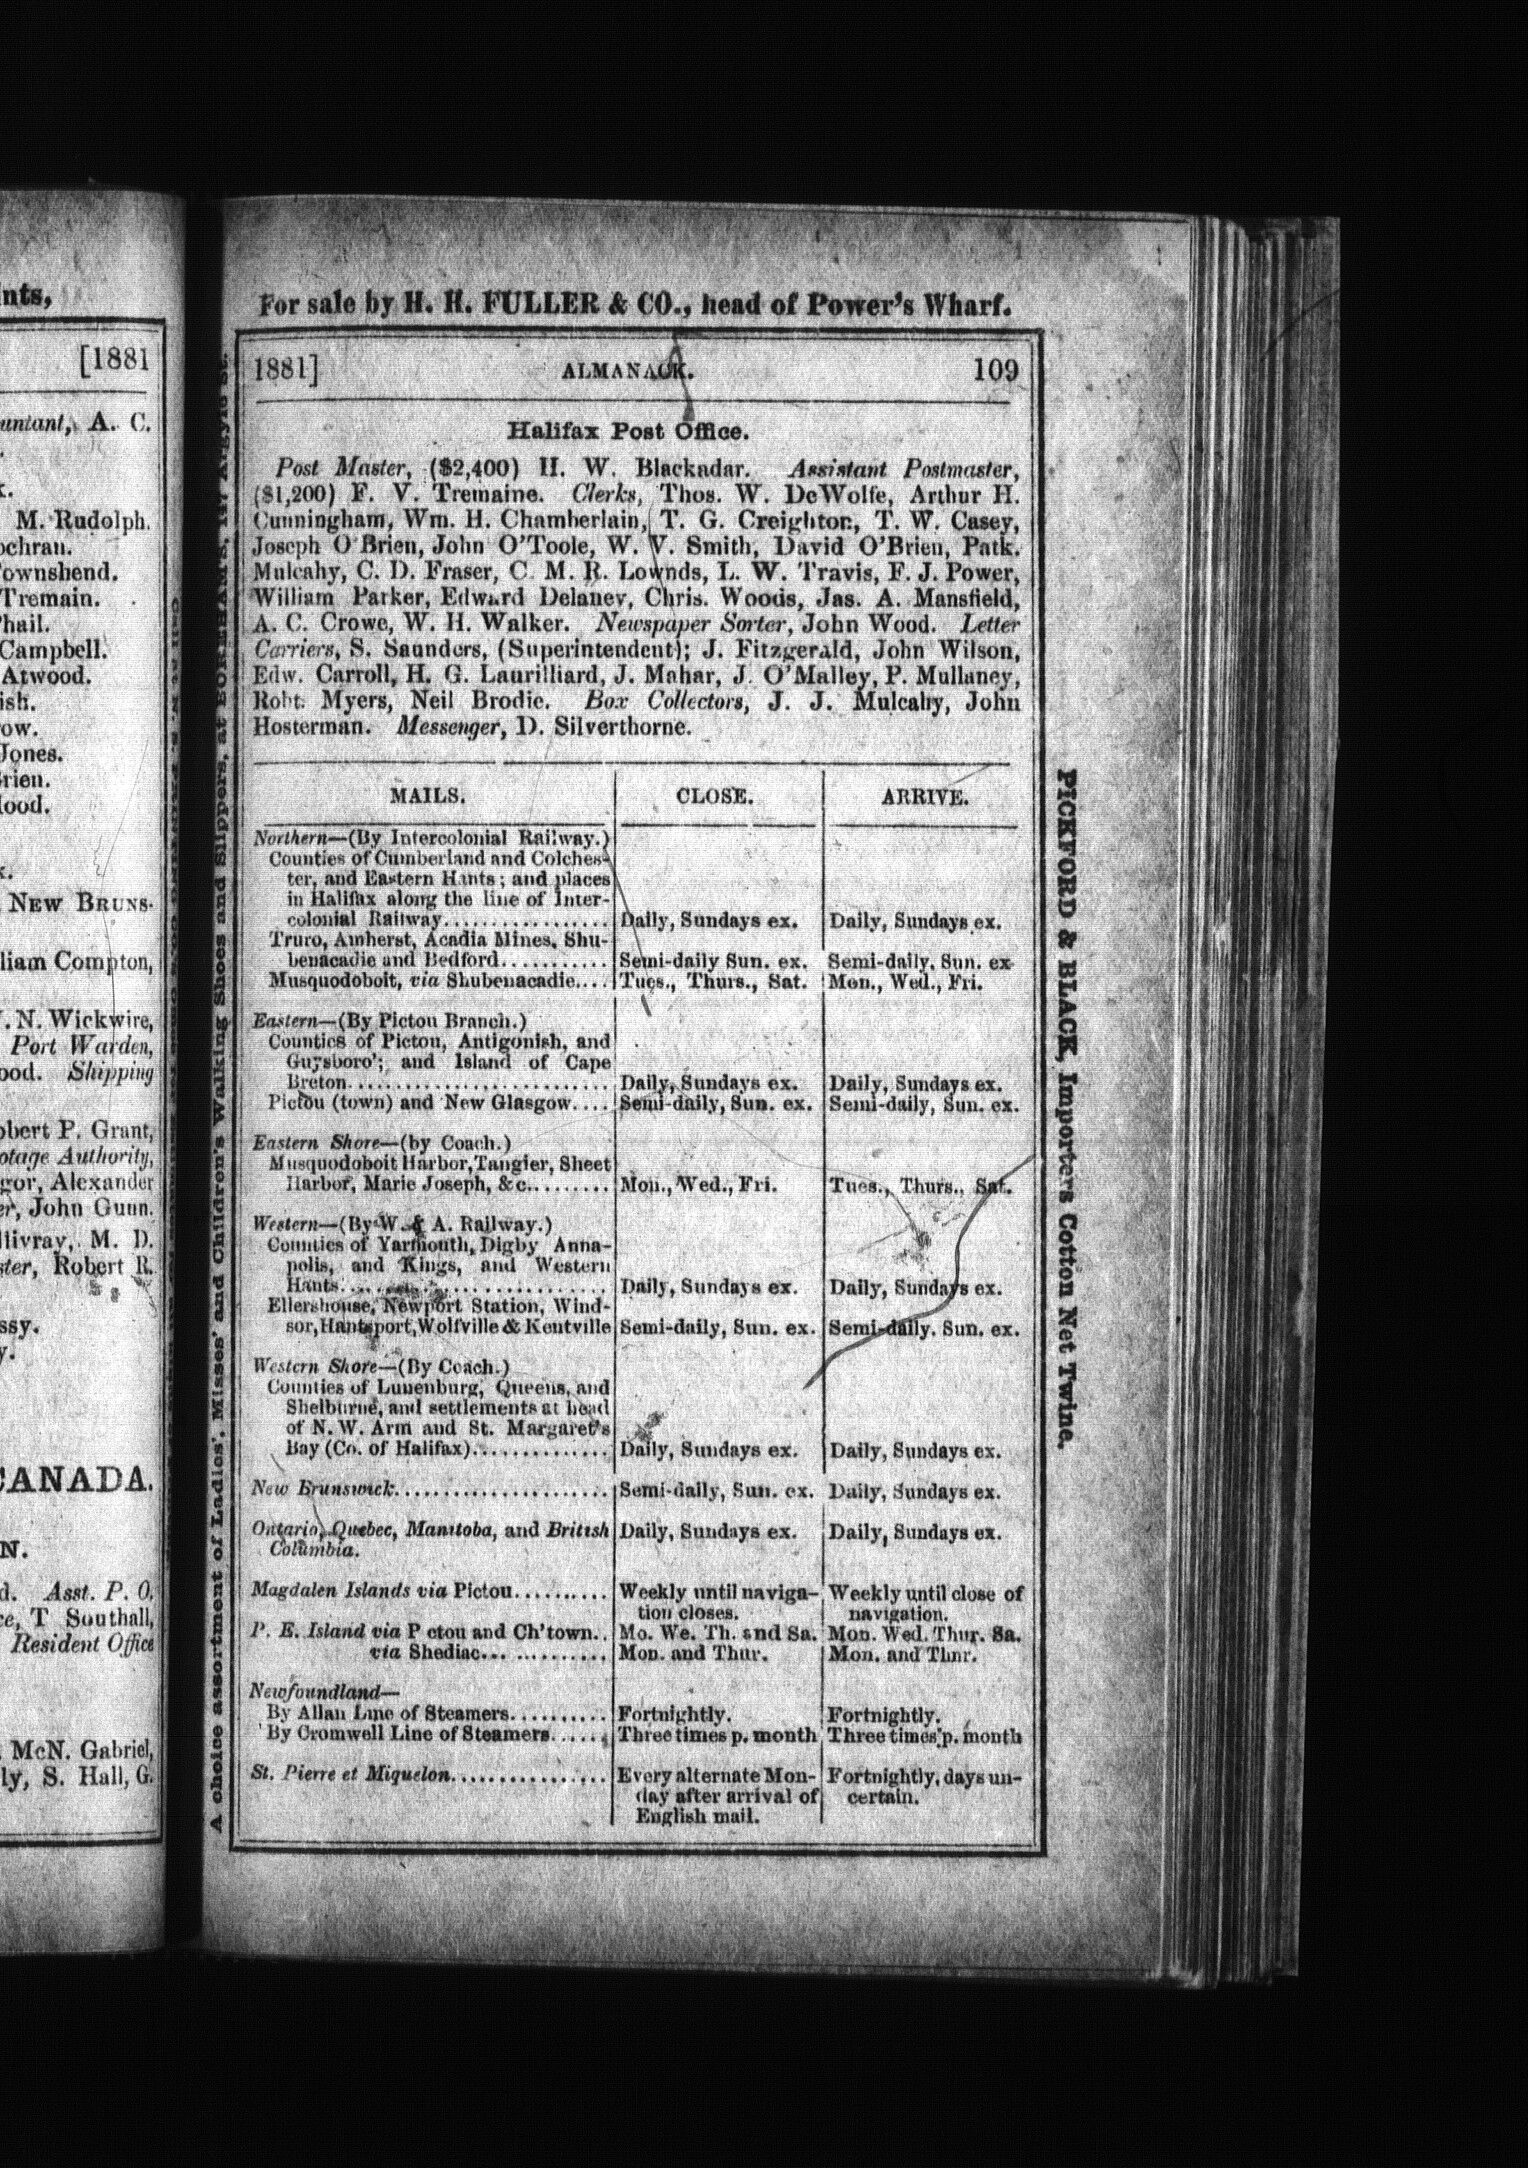 nts,
[1881
untant, A. C.
M. Rudolph.
ochran.
ownshend.
Tremain.
hail.
Campbell.
Atwood.
ish.
ow.
Jones.
rien.
ood.
NEW BRUNS-
liam Compton,
. N. Wickwire,
Port Warden,
ood. Shipping
obert P. Grant,
otage Authority,
gor, Alexander
er, John Gunn.
llivray, M. D.
ster, Robert R.
ssy.
y.
CANADA.
N.
d. Asst. P. O.
ce, T Southall,
Resident Office
McN. Gabriel,
ly, S. Hall, G.
For sale by H. H. FULLER & CO., head of Power's Wharf.
1881] ALMANACK. 109
Halifax Post Office.
Post Master, ($2,400) H. W. Blackadar. Assistant Postmaster,
($1,200) F. V. Tremaine. Clerks, Thos. W. DeWolfe, Arthur H.
Cunningham, Wm. H. Chamberlain, T. G. Creighton, T. W. Casey,
Joseph O'Brien, John O'Toole, W. V. Smith, David O'Brien, Patk.
Mulcahy, C. D. Fraser, C. M. R. Lownds, L. W. Travis, F. J. Power,
William Parker, Edward Delaney, Chris. Woods, Jas. A. Mansfield,
A. C. Crowe, W. H. Walker. Newspaper Sorter, John Wood. Letter
Carriers, S. Saunders, (Superintendent); J. Fitzgerald, John Wilson,
Edw. Carroll, H. G. Laurilliard, J. Mahar, J. O'Malley, P. Mullaney,
Robt. Myers, Neil Brodie. Box Collectors, J. J. Mulcahy, John
Hosterman. Messenger, D. Silverthorne.
MAILS. CLOSE. ARRIVE.
Northern—(By Intercolonial Railway.)
Counties of Cumberland and Colches-
ter, and Eastern Hants; and places
in Halifax along the line of Inter-
colonial Railway................. Daily, Sundays ex. Daily, Sundays ex.
Truro, Amherst, Acadia Mines, Shu-
benacadie and Bedford........... Semi-daily Sun. ex. Semi-daily. Sun. ex
Musquodoboit, via Shubenacadie.... Tues., Thurs., Sat. Mon., Wed., Fri.
Eastern—(By Pictou Branch.)
Counties of Pictou, Antigonish, and
Guysboro'; and Island of Cape
Breton........................... Daily, Sundays ex. Daily, Sundays ex.
Pictou (town) and New Glasgow.... Semi-daily, Sun. ex. Semi-daily, Sun. ex.
Eastern Shore—(by Coach.)
Musquodoboit Harbor, Tangier, Sheet
Harbor, Marie Joseph, &c......... Mon., Wed., Fri. Tues., Thurs., Sat.
Western—(By W. & A. Railway.)
Counties of Yarmouth, Digby Anna-
polis, and Kings, and Western
Hants........................... Daily, Sundays ex. Daily, Sundays ex.
Ellershouse, Newport Station, Wind-
sor, Hantsport, Wolfville & Kentville Semi-daily, Sun. ex. Semi-daily. Sun. ex.
Western Shore—(By Coach.)
Counties of Lunenburg, Queens, and
Shelburne, and settlements at head
of N. W. Arm and St. Margaret's
Bay (Co. of Halifax).............. Daily, Sundays ex. Daily, Sundays ex.
New Brunswick...................... Semi-daily, Sun. ex. Daily, Sundays ex.
Ontario, Quebec, Manitoba, and British Daily, Sundays ex. Daily, Sundays ex.
Columbia.
Magdalen Islands via Pictou.......... Weekly until naviga- Weekly until close of
tion closes. navigation.
P. E. Island via P ctou and Ch'town.. Mo. We. Th. and Sa. Mon. Wed. Thur. Sa.
via Shediac............ Mon. and Thur. Mon. and Thur.
Newfoundland—
By Allan Line of Steamers.......... Fortnightly. Fortnightly.
By Cromwell Line of Steamers...... Three times p. month Three times p. month
St. Pierre et Miquelon................ Every alternate Mon- Fortnightly, days un-
day after arrival of certain.
English mail.
A choice assortment of Ladies', Misses' and Children's Walking Shoes and Slippers, at
PICKFORD & BLACK, Importers Cotton Net Twine.